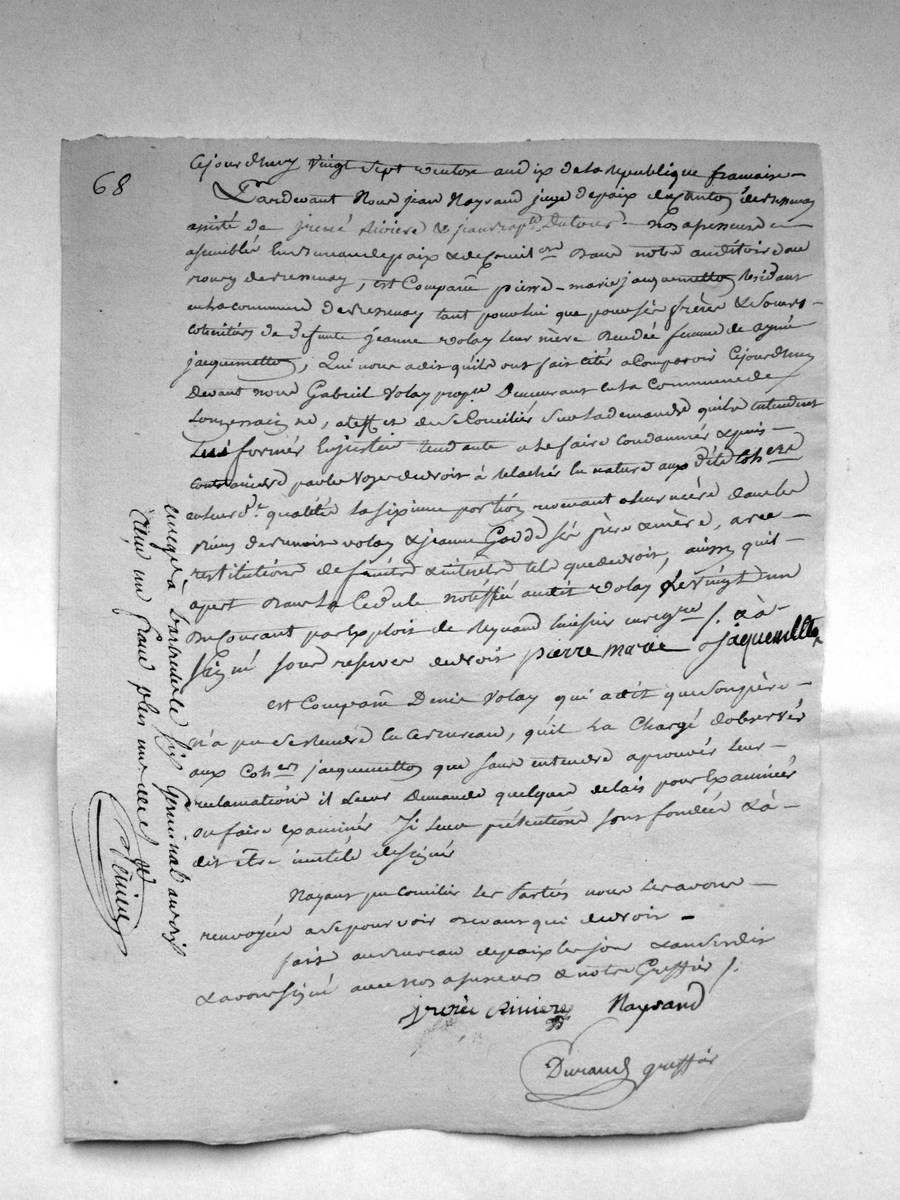 68
Cejourdhuy vingt sept ventose an dix de la republique francaise
Pardevant Nous jean Naysand juge depaix du canton
assisté de jrenée Riviere & jean bap.te Nos assesseurs
assemblés au bureau depaix & de Concil.on dans notre auditoire au
bourg , est Comparu pierre-marie jacquemetton Residant
en la commune de tant pour lui que pour ses frères & soeurs
Cohéritiers de defunte jeanne Volay leur mère femme de aymé
jacquemetton, Qui nous a dit quils ont fait cités a Comparoir Cejourdhuy
Devant nous Gabriel Volay prop.re Demeurant en la Commune de
, a leffet de se Concilier sur la demande quils entendent
formér En justice tendante a le faire Condamnér & puis
contraindre par les voyes de droit à relachér en nature aux dits Coh.ers
en leurs d.tes qualités la sixieme portion revenant a leur mère dans les
biens de Volay & jeanne ses père & mère, avec
restitutions de fruits & interets tels que de droit, ainsy quil
apert dans la Cedule notiffiée audit Volay Le vingt un
Du Courant par Exploit de Reynaud huissier enregistré /. & à
signé sous reserves de droit pierre marie Jaquemetton
est Comparu Denis Volay qui a dit que son père
n'a pu se rendre En ce bureau, quil La Chargé dobservér
aux Coh.ers jacquemetton que sans entendre aprouvér leurs
reclamations il Leur Demande quelques delais pour Examinér
ou faire examinér Si leurs prétentions sont fondées & à
dit être inutile de signér
Nayant pu Concilier Les Parties nous les avons
renvoyées a se pourvoir devant qui de droit
fait au bureau depaix les jour & an susdits
& avons signé avec nos assesseurs & notre Greffiér /.
jrenée Riviere Naysand
Durand greffiér
enregré à le six Germinal an dix
reçu un franc plus une